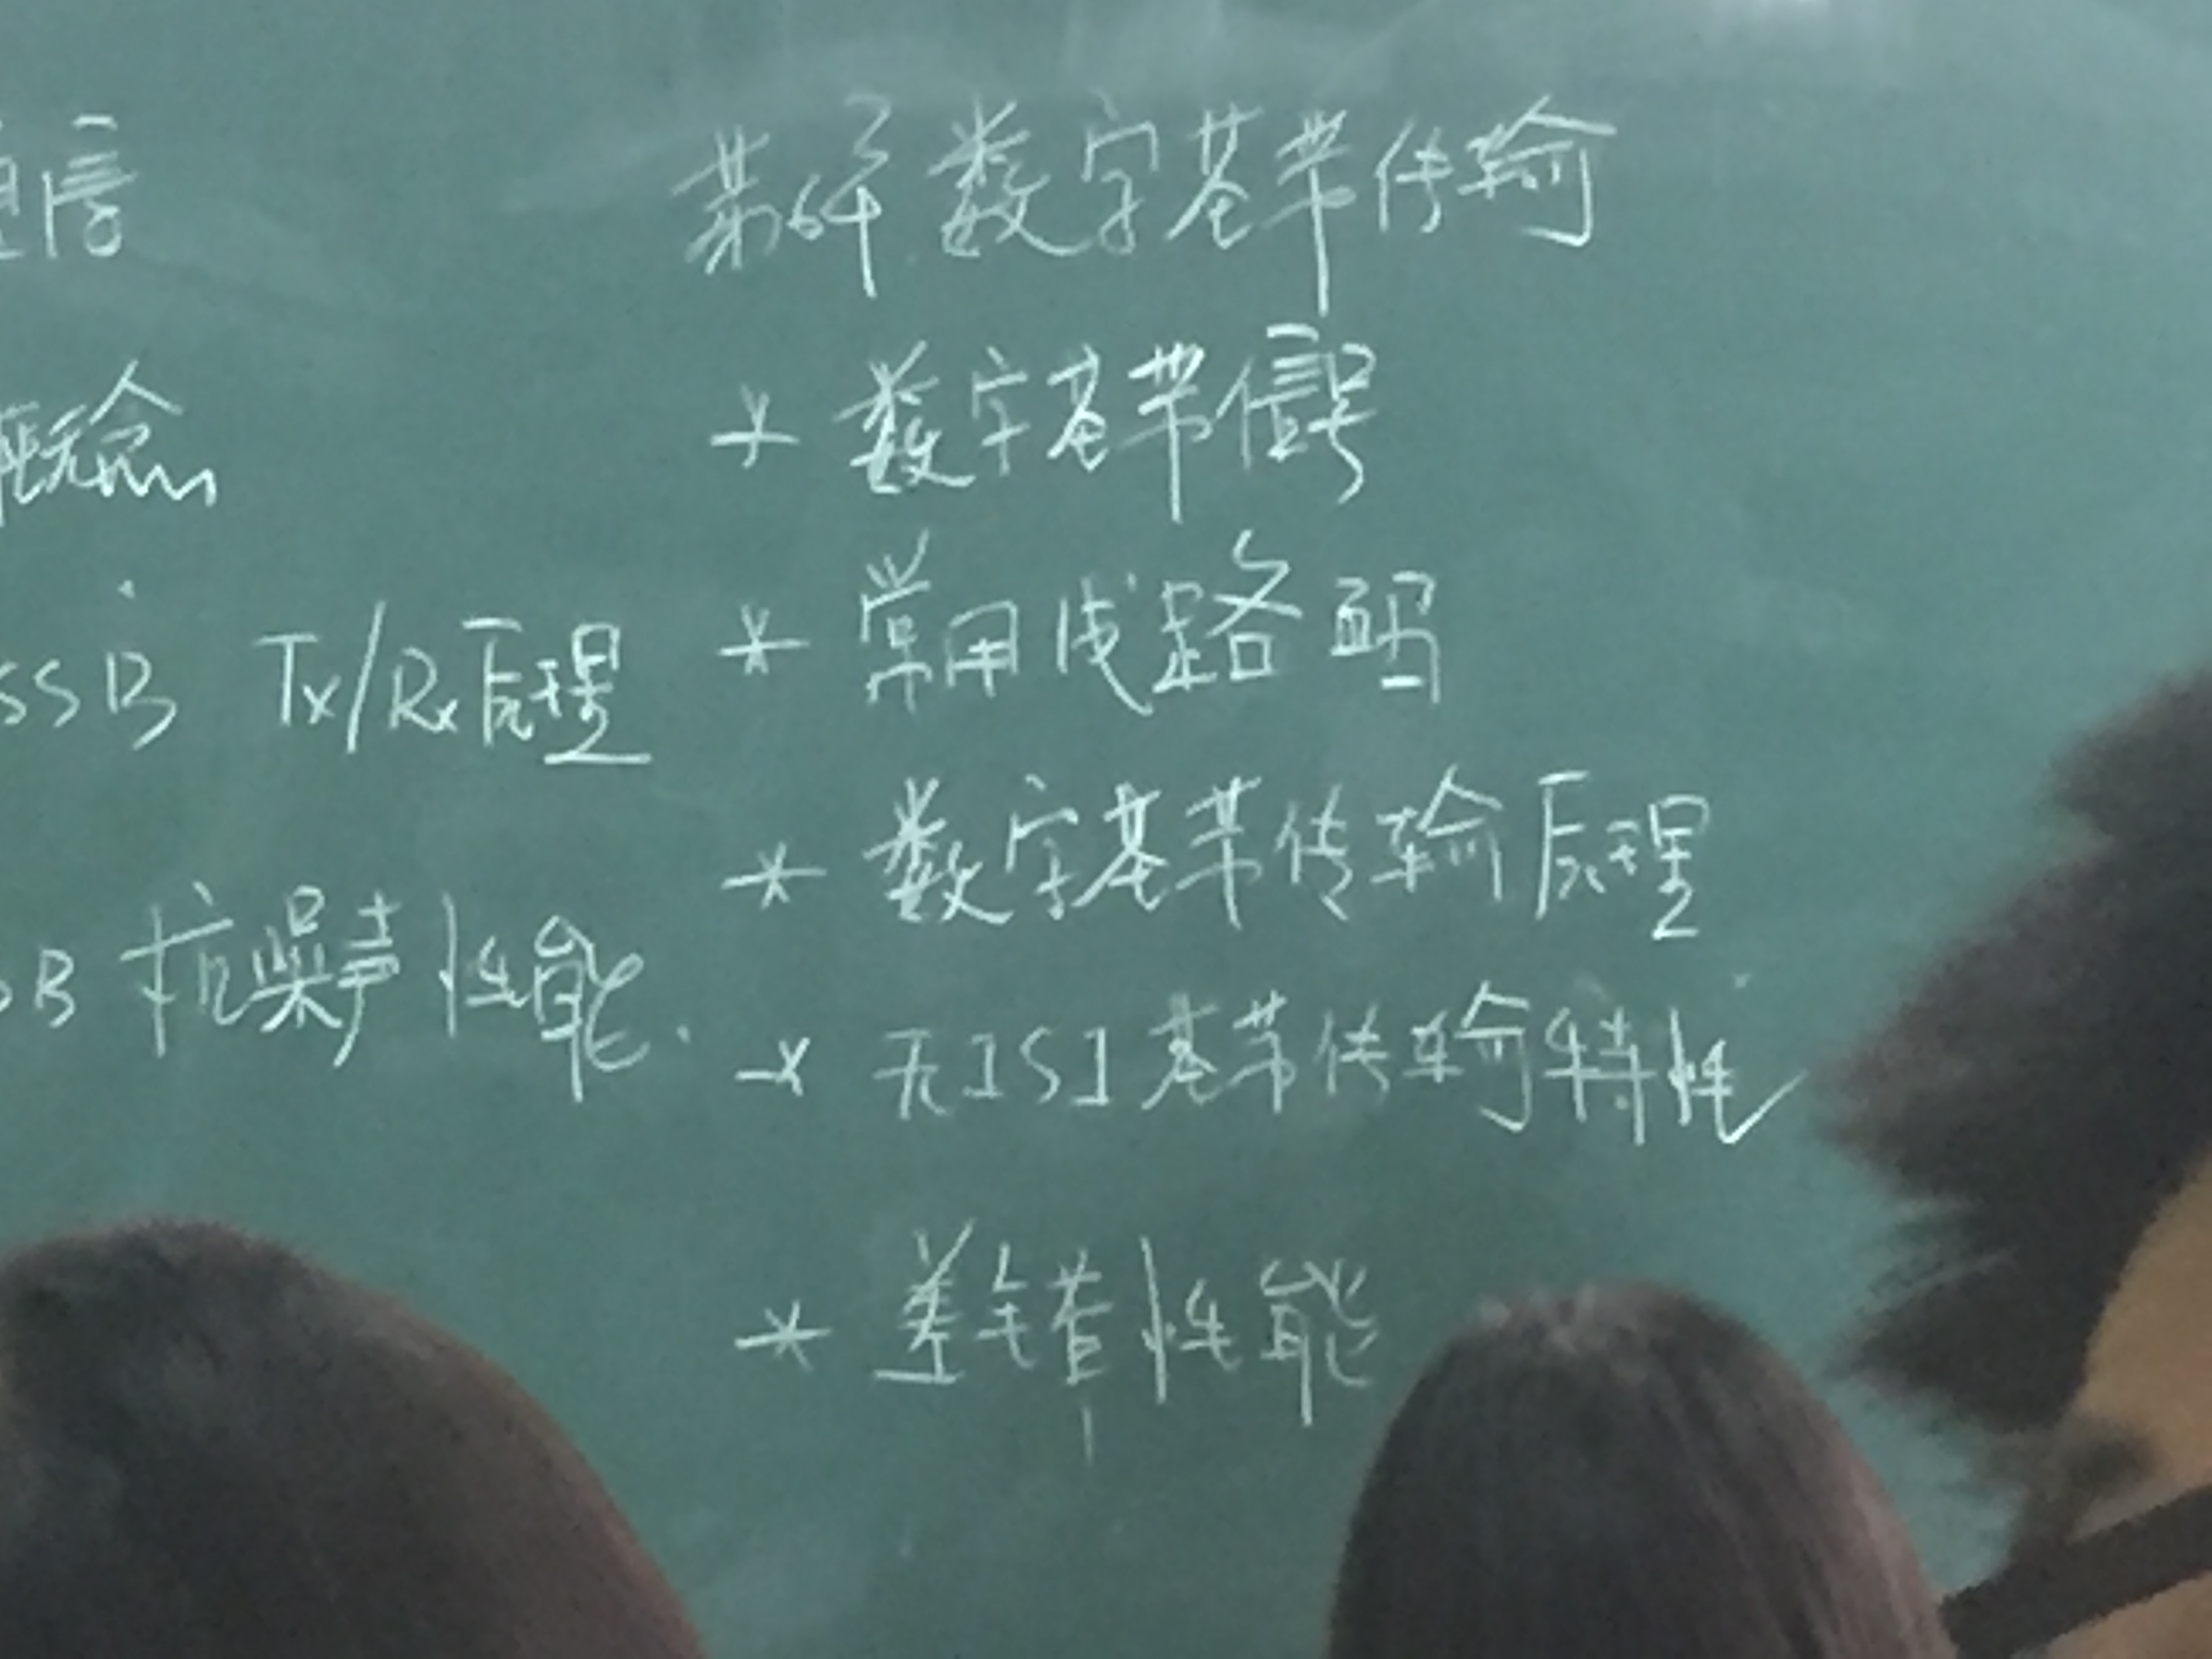 通信
概念
SSB Tx/Rx原理
B 抗噪声性能.
第6章 数字基带传输
* 数字基带信号
* 常用线路码
* 数字基带传输原理
* 无ISI基带传输特性
* 差错性能